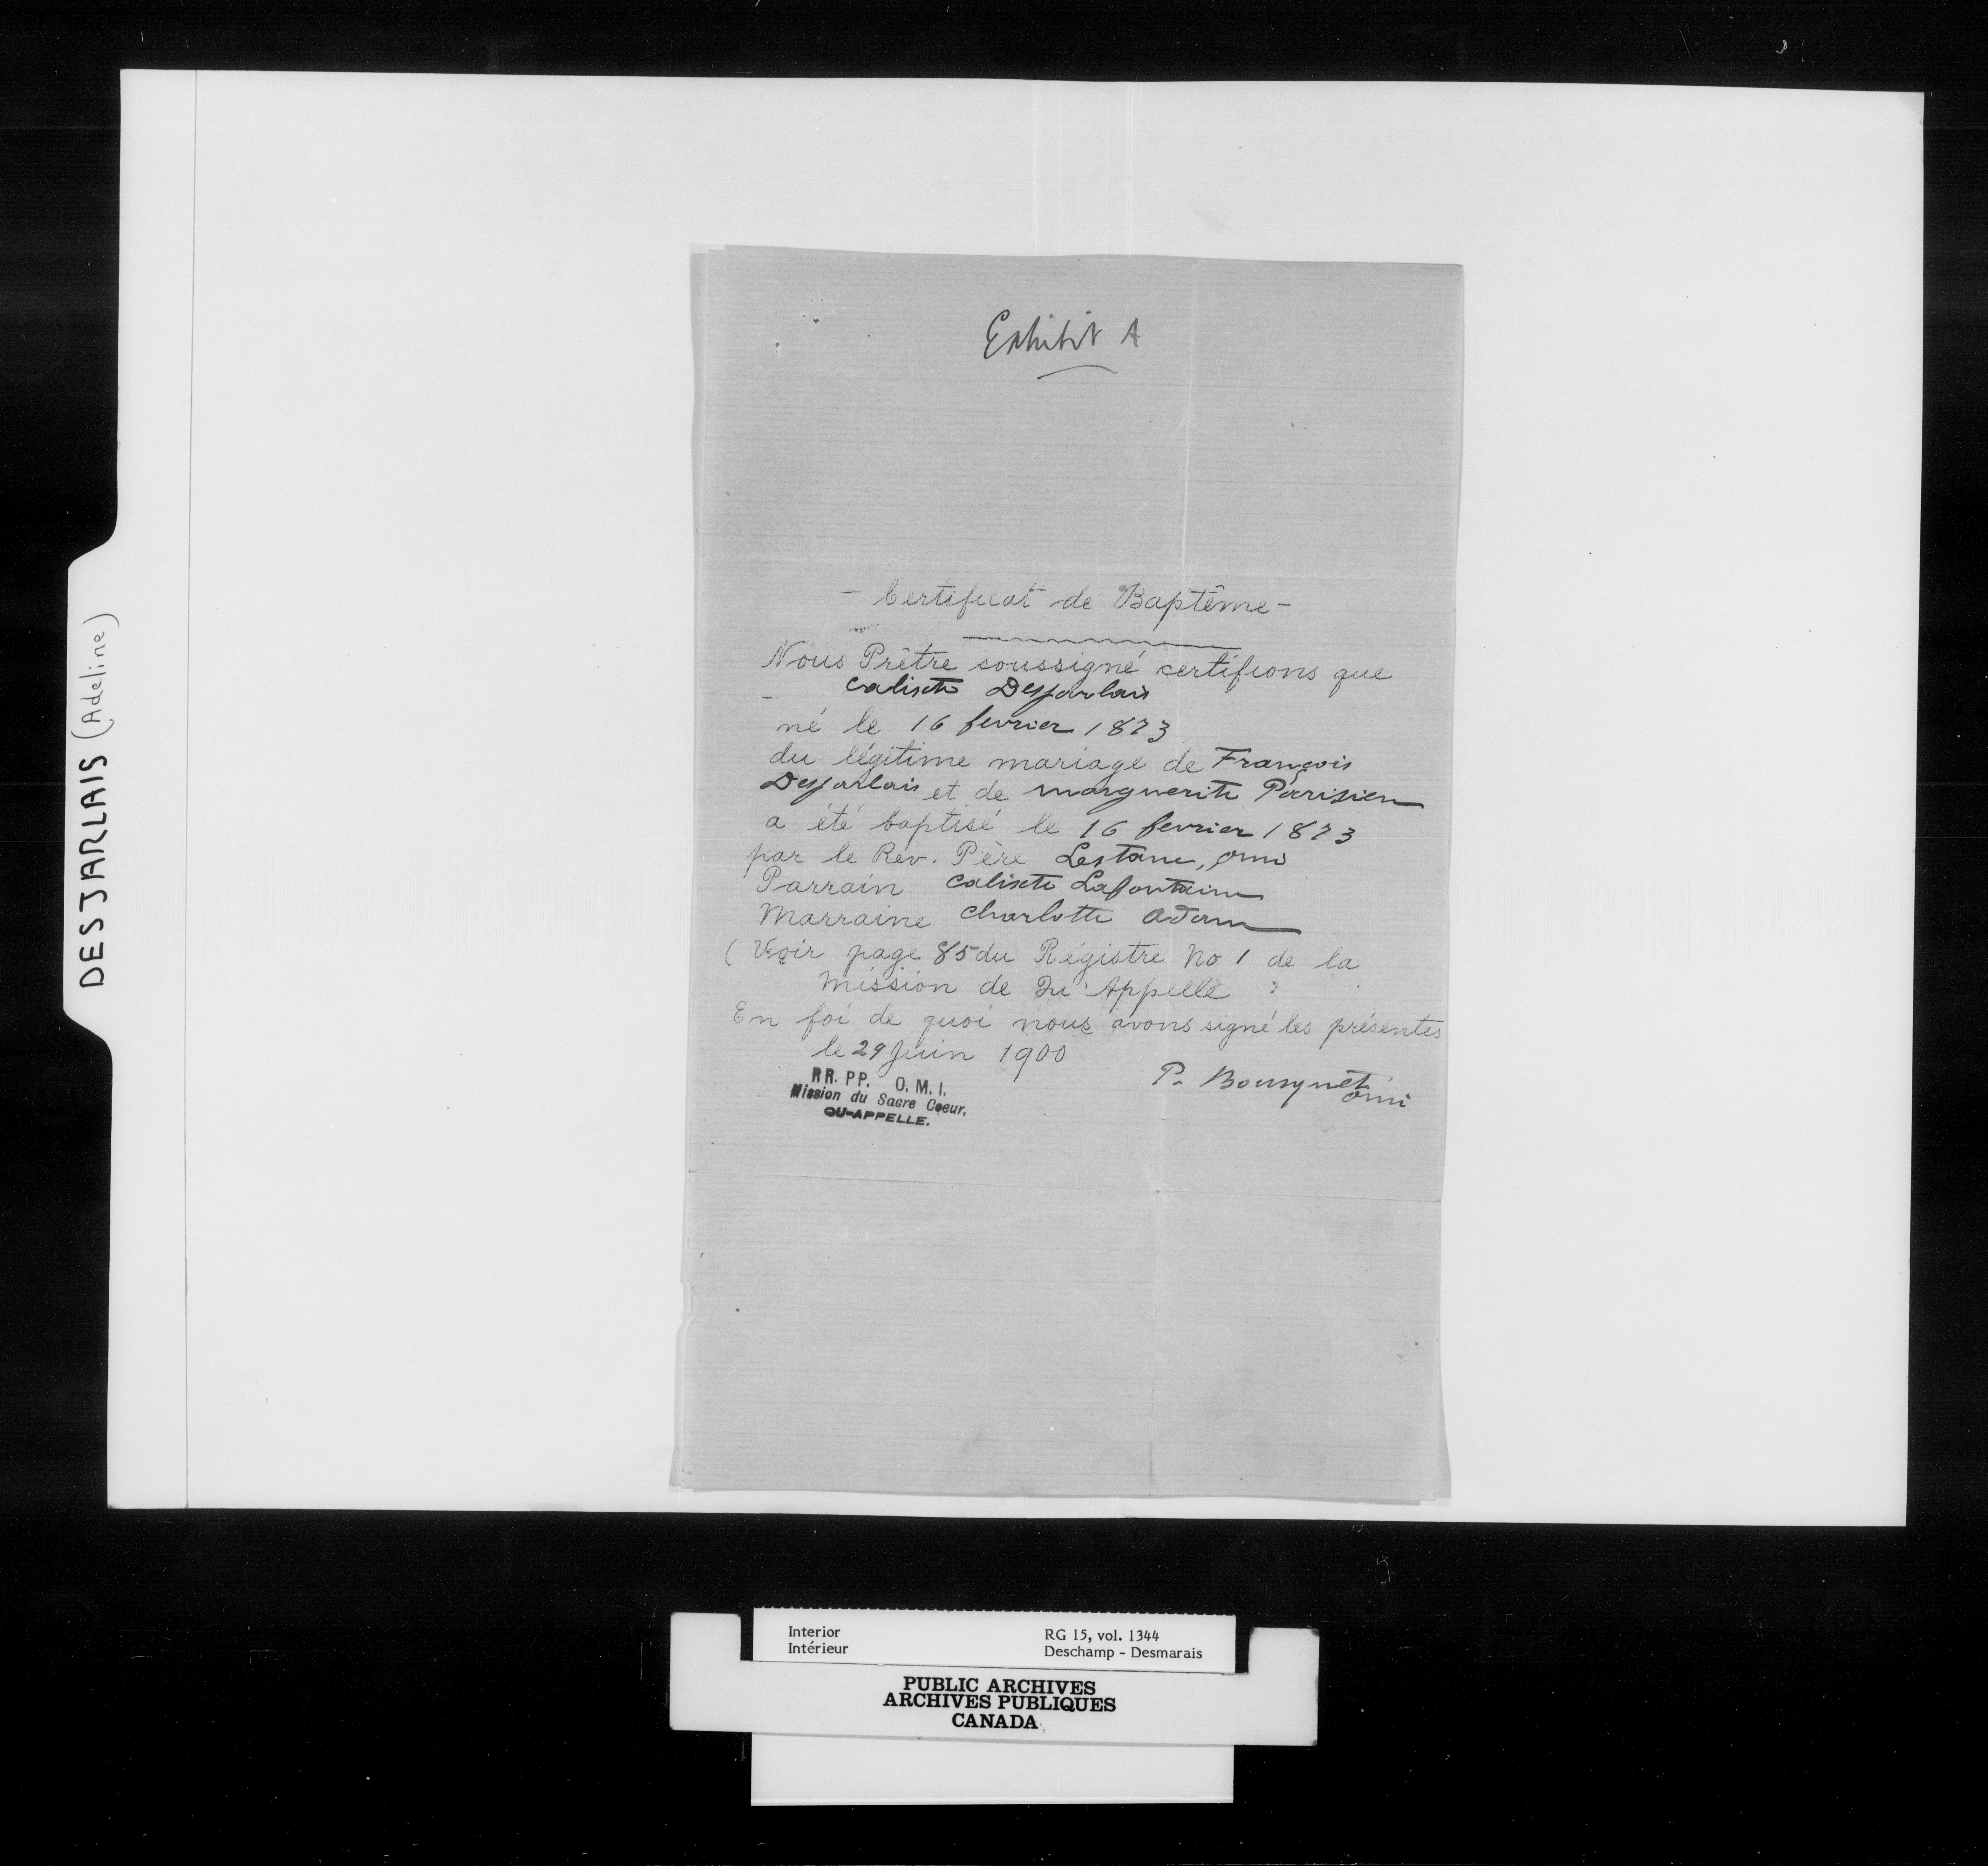 DESJARLAIS (Adeline)
Exhibit A
- Certificat de Baptême -
Nous Prêtre soussigné certifions que
Calixte Desjarlais
né le 16 fevrier 1873
du légitime mariage de François
Desjarlais et de Marguerite Parisien
a été baptisé le 16 fevrier 1873
par le Rév. Père Lestanc, omi
Parrain Calixte Lafontaine
Marraine Charlotte Adam
( Voir page 85 du Régistre No 1 de la
Mission de Qu'Appelle
En foi de quoi nous avons signé les présentes
le 29 Juin 1900
P. Bousquet
omi
RR. PP. O. M. I.
Mission du Sacre Coeur.
QU-APPELLE.
Interior
Intérieur
RG 15, vol. 1344
Deschamp - Desmarais
PUBLIC ARCHIVES
ARCHIVES PUBLIQUES
CANADA